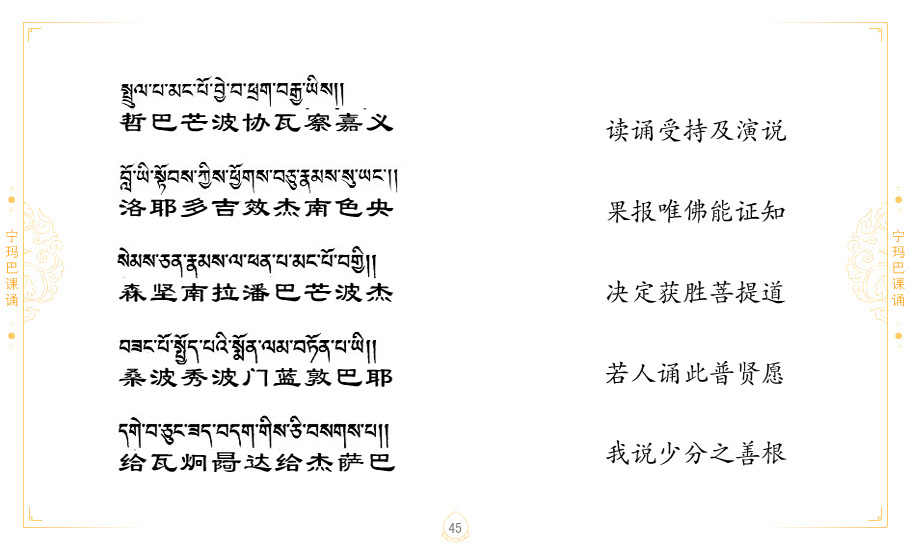 སྤྲུལ་པ་མང་པོ་བྱེ་བ་ཕྲག་བརྒྱ་ཡིས།།
哲巴芒波协瓦察嘉义
读诵受持及演说
བློ་ཡི་སྟོབས་ཀྱིས་ཕྱོགས་བཅུ་རྣམས་སུ་ཡང་།།
洛耶多吉效杰南色央
果报唯佛能证知
སེམས་ཅན་རྣམས་ལ་ཕན་པ་མང་པོ་བགྱི།།
森坚南拉潘巴芒波杰
决定获胜菩提道
བཟང་པོ་སྤྱོད་པའི་སྨོན་ལམ་བཏོན་པ་ཡི།།
桑波秀波门蓝敦巴耶
若人诵此普贤愿
དགེ་བ་ཅུང་ཟད་བདག་གིས་ཅི་བསགས་པ།།
给瓦炯噶达给杰萨巴
我说少分之善根
宁玛巴课诵
宁玛巴课诵
45